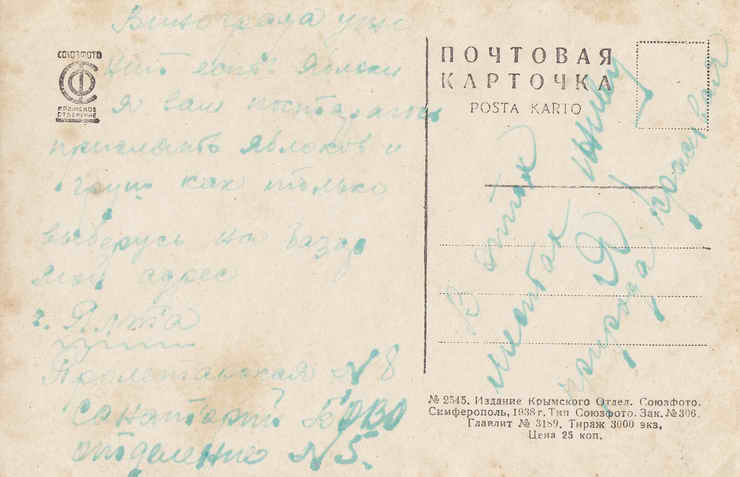 Винограда уже
нит есть яблоки
я вам постараюсь
прислать яблоков и
груш как только
выберусь на базар
мой адрес
г. Ялта
№ 8
санаторий БОВО
отделение № 5.
СОЮЗФОТО
КРЫМСКОЕ
ОТДЕЛЕНИЕ
ПОЧТОВАЯ
КАРТОЧКА
POSTA KARTO
В этих
местах
я живу
природа красивая
№ 2545. Издание Крымского Отдел. Союзфото.
Симферополь, 1938 г. Тип Союзфото. Зак. № 306.
Главлит № 3189. Тираж 3000 экз.
Цена 25 коп.